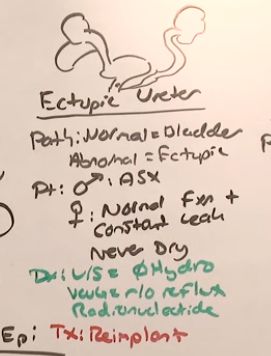 Ectopic Ureter
Path: Normal = Bladder
Abnormal = Ectopic
Pt: ♂: ASx
♀: Normal Fxn +
Constant Leak
Never Dry
Dx: U/S = ∅ Hydro
VCUG = r/o reflux
Radionucleotide
Ep: Tx: Reimplant